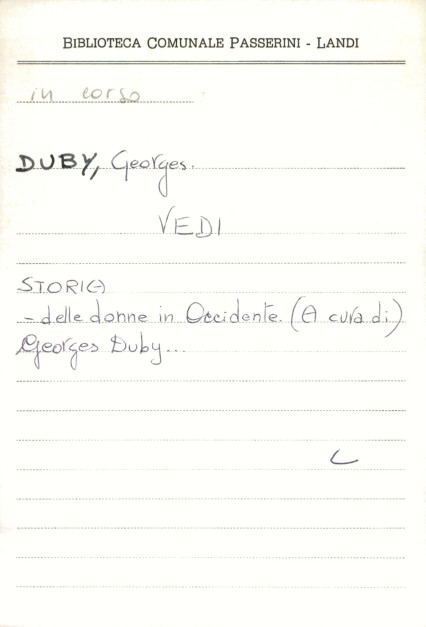 BIBLIOTECA COMUNALE PASSERINI - LANDI
in corso
DUBY, Georges.
VEDI
STORIA
- delle donne in Occidente. (A cura di)
Georges Duby...